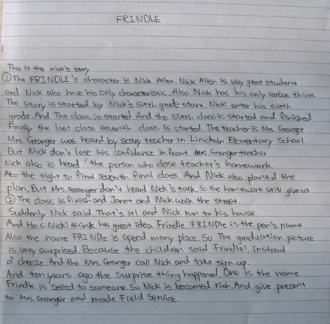 FRINDLE
This is the nick's story
① The FRINDLE's character is Nick Allen. Nick Allen is very great student
and Nick also have his only characteristic. Also Nick has his only think
The story is started by Nick's sixth grade start. Nick enter his sixth
grade. And The class is started And the sixth class is started and finished
Finally the last class seventh class is started. The teacher is Mrs. Granger
Mrs. Granger was heard by teacher in Lincoln Elementary School
But Nick don't lose his confidence in front Mrs. Granger teacher
Nick also is heard "the person who teacher's homework.
the night to final seventh final class. And Nick also planed the
plan. But Mrs. Granger don't heard Nick's talk. So the homework still give us
② The class is finish and Janet and Nick walk the street.
Suddenly Nick said That's it! and Nick run to his house.
And He (Nick) think his great idea. Frindle FRINDLE is the pen's name
Also the name FRINDLE is spend many place. So The graduation picture
is very surprised. Because the children said Frindle!, instead
of cheeze. And the Mrs. Granger call Nick and take sign up.
And ten years ago the surprise thing happened. One is the name
Frindle is selled to someone. So Nick is becomed rich. And give present
to Mrs. Granger and made Field Service.